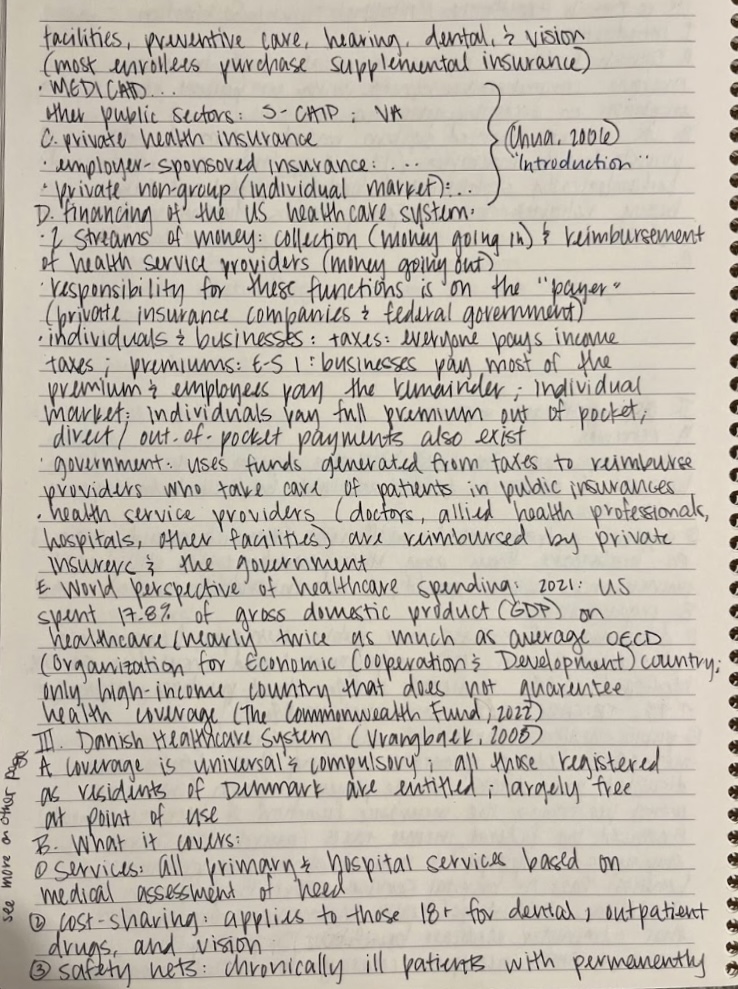 facilities, preventive care, hearing, dental, & vision
(most enrollees purchase supplemental insurance)
· MEDICAID...
other public sectors: S-CHIP; VA
C. private health insurance
· employer-sponsored insurance: ...
· private non-group (individual market): ...
(Chua, 2006)
"Introduction"
D. financing of the US healthcare system:
· 2 streams of money: collection (money going in) & reimbursement
of health service providers (money going out)
· responsibility for these functions is on the "payer"
(private insurance companies & federal government)
· individuals & businesses: taxes: everyone pays income
taxes; premiums: E-S I: businesses pay most of the
premium & employees pay the remainder; individual
market: individuals pay full premium out of pocket;
direct/out-of-pocket payments also exist
· government: uses funds generated from taxes to reimburse
providers who take care of patients in public insurances
· health service providers (doctors, allied health professionals,
hospitals, other facilities) are reimbursed by private
insurers & the government
E. World perspective of healthcare spending: 2021: US
spent 17.8% of gross domestic product (GDP) on
healthcare (nearly twice as much as average OECD
(Organization for Economic Cooperation & Development) country;
only high-income country that does not guarentee
health coverage (The Commonwealth Fund, 2022)
III. Danish Healthcare System (Vrangbaek, 2008)
A coverage is universal & compulsory; all those registered
as residents of Denmark are entitled; largely free
at point of use
B. What it covers:
① services: all primary & hospital services based on
medical assessment of need
② cost-sharing: applies to those 18+ for dental, outpatient
drugs, and vision
③ safety nets: chronically ill patients with permanently
see more on other page